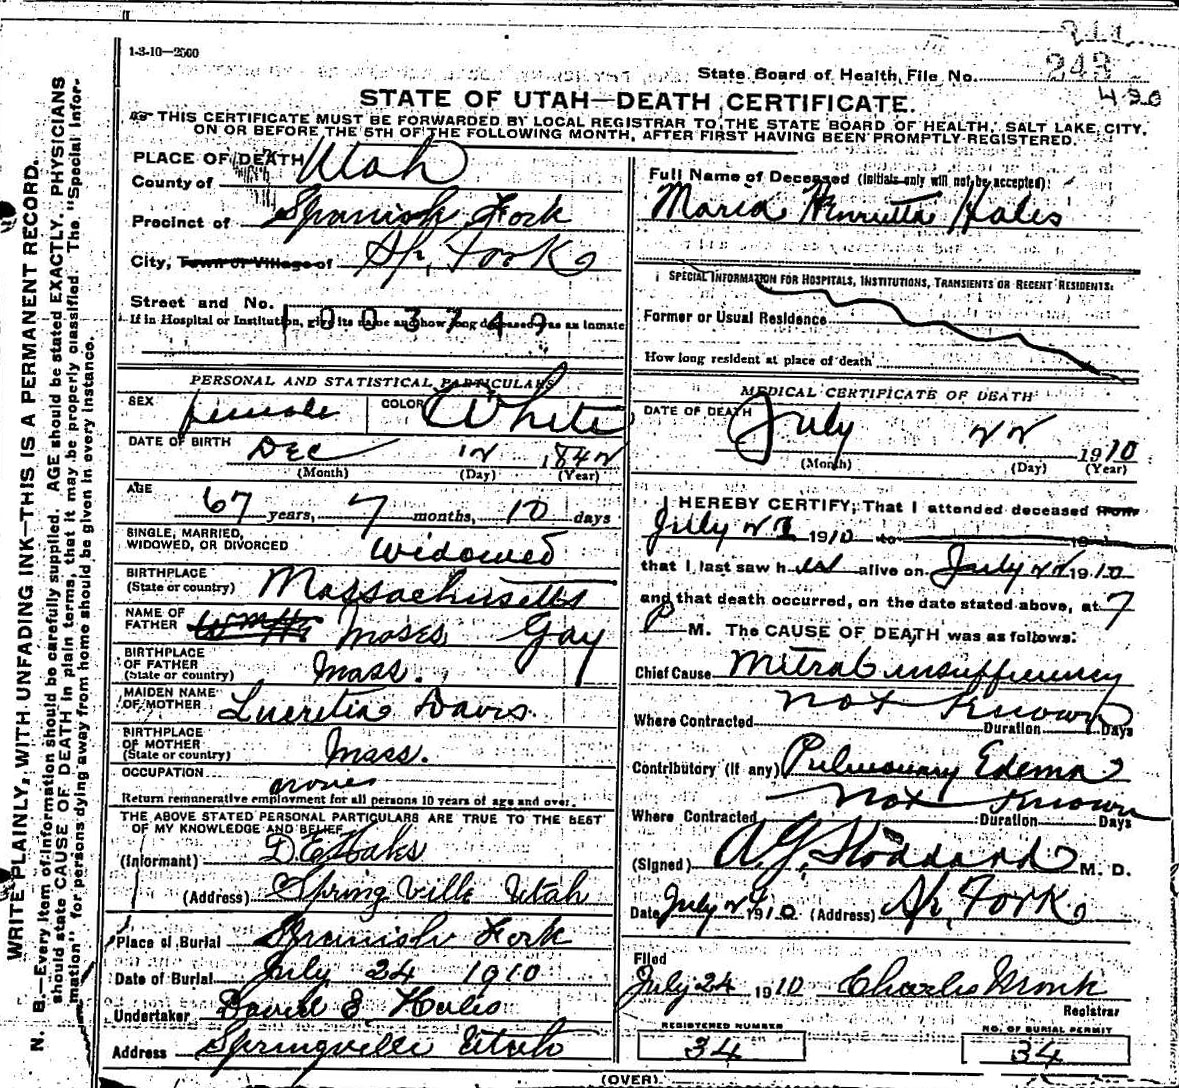 1-3-10—2500
State Board of Health File No. 243
490
STATE OF UTAH—DEATH CERTIFICATE.
THIS CERTIFICATE MUST BE FORWARDED BY LOCAL REGISTRAR TO THE STATE BOARD OF HEALTH, SALT LAKE CITY,
ON OR BEFORE THE 5TH OF THE FOLLOWING MONTH, AFTER FIRST HAVING BEEN PROMPTLY REGISTERED.
WRITE PLAINLY, WITH UNFADING INK—THIS IS A PERMANENT RECORD.
N. B.—Every item of information should be carefully supplied. AGE should be stated EXACTLY. PHYSICIANS
should state CAUSE OF DEATH in plain terms, that it may be properly classified. The "Special Infor-
mation" for persons dying away from home should be given in every instance.
PLACE OF DEATH
County of Utah
Precinct of Spanish Fork
City, Town or Village of Sp. Fork
Street and No.
If in Hospital or Institution, give its name and how long deceased was an inmate
1003749
PERSONAL AND STATISTICAL PARTICULARS
SEX female COLOR White
DATE OF BIRTH Dec 12 1842
(Month) (Day) (Year)
AGE
67 years, 7 months, 10 days
SINGLE, MARRIED,
WIDOWED, OR DIVORCED widowed
BIRTHPLACE
(State or country) Massachusetts
NAME OF
FATHER Moses Gay
BIRTHPLACE
OF FATHER
(State or country) Mass.
MAIDEN NAME
OF MOTHER Lucretia Davis
BIRTHPLACE
OF MOTHER
(State or country) Mass.
OCCUPATION
Return remunerative employment for all persons 10 years of age and over.
THE ABOVE STATED PERSONAL PARTICULARS ARE TRUE TO THE BEST
OF MY KNOWLEDGE AND BELIEF
(Informant) D E Hales
(Address) Spring Ville Utah
Place of Burial Spanish Fork
Date of Burial July 24 1910
Undertaker David E. Hales
Address Springville Utah
Full Name of Deceased (Initials only will not be accepted):
Maria Henrietta Hales
SPECIAL INFORMATION FOR HOSPITALS, INSTITUTIONS, TRANSIENTS OR RECENT RESIDENTS:
Former or Usual Residence
How long resident at place of death
MEDICAL CERTIFICATE OF DEATH
DATE OF DEATH July 22 1910
(Month) (Day) (Year)
I HEREBY CERTIFY, That I attended deceased from
July 21 1910 to 19
that I last saw her alive on July 22 1910
and that death occurred, on the date stated above, at 7
P M. The CAUSE OF DEATH was as follows:
Chief Cause Mitral insufficiency
Where Contracted not Known Duration Days
Contributory (If any) Pulmonary Edema
Where Contracted not Known Duration Days
(Signed) A. G. Stoddard M. D.
Date July 1910 (Address) Sp. Fork
Filed
July 24 1910 Charles Monk
Registrar
REGISTERED NUMBER
34
NO. OF BURIAL PERMIT
34
(OVER)